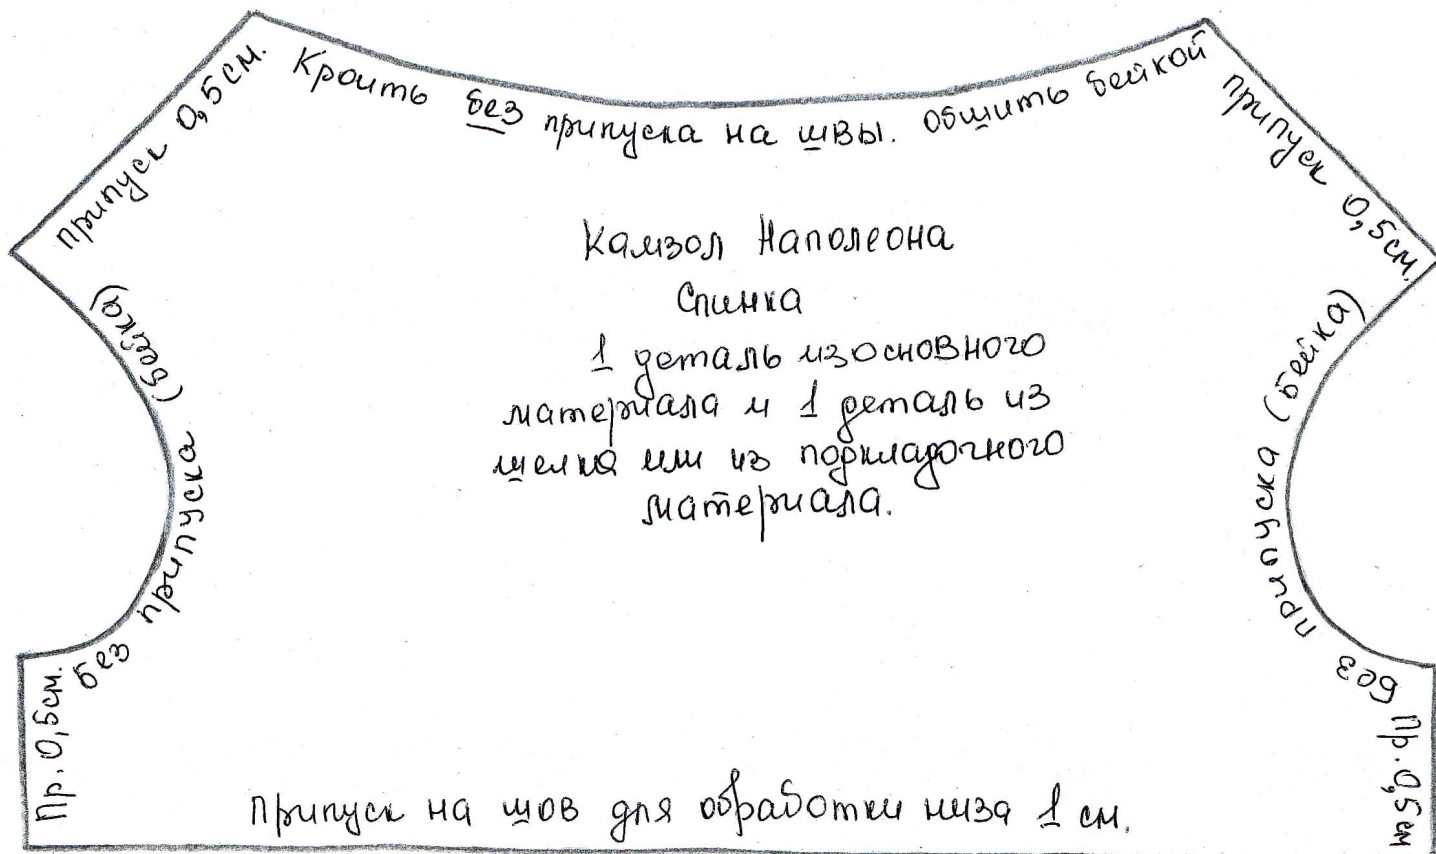 Припуск 0,5 см.
Кроить без припуска на швы. обшить бейкой
припуск 0,5 см.
Камзол Наполеона
Спинка
1 деталь из основного
материала и 1 деталь из
шелка или из подкладочного
материала.
без припуска (бейка)
без припуска (бейка)
Пр. 0,5 см.
Пр. 0,5 см
Припуск на шов для обработки низа 1 см.